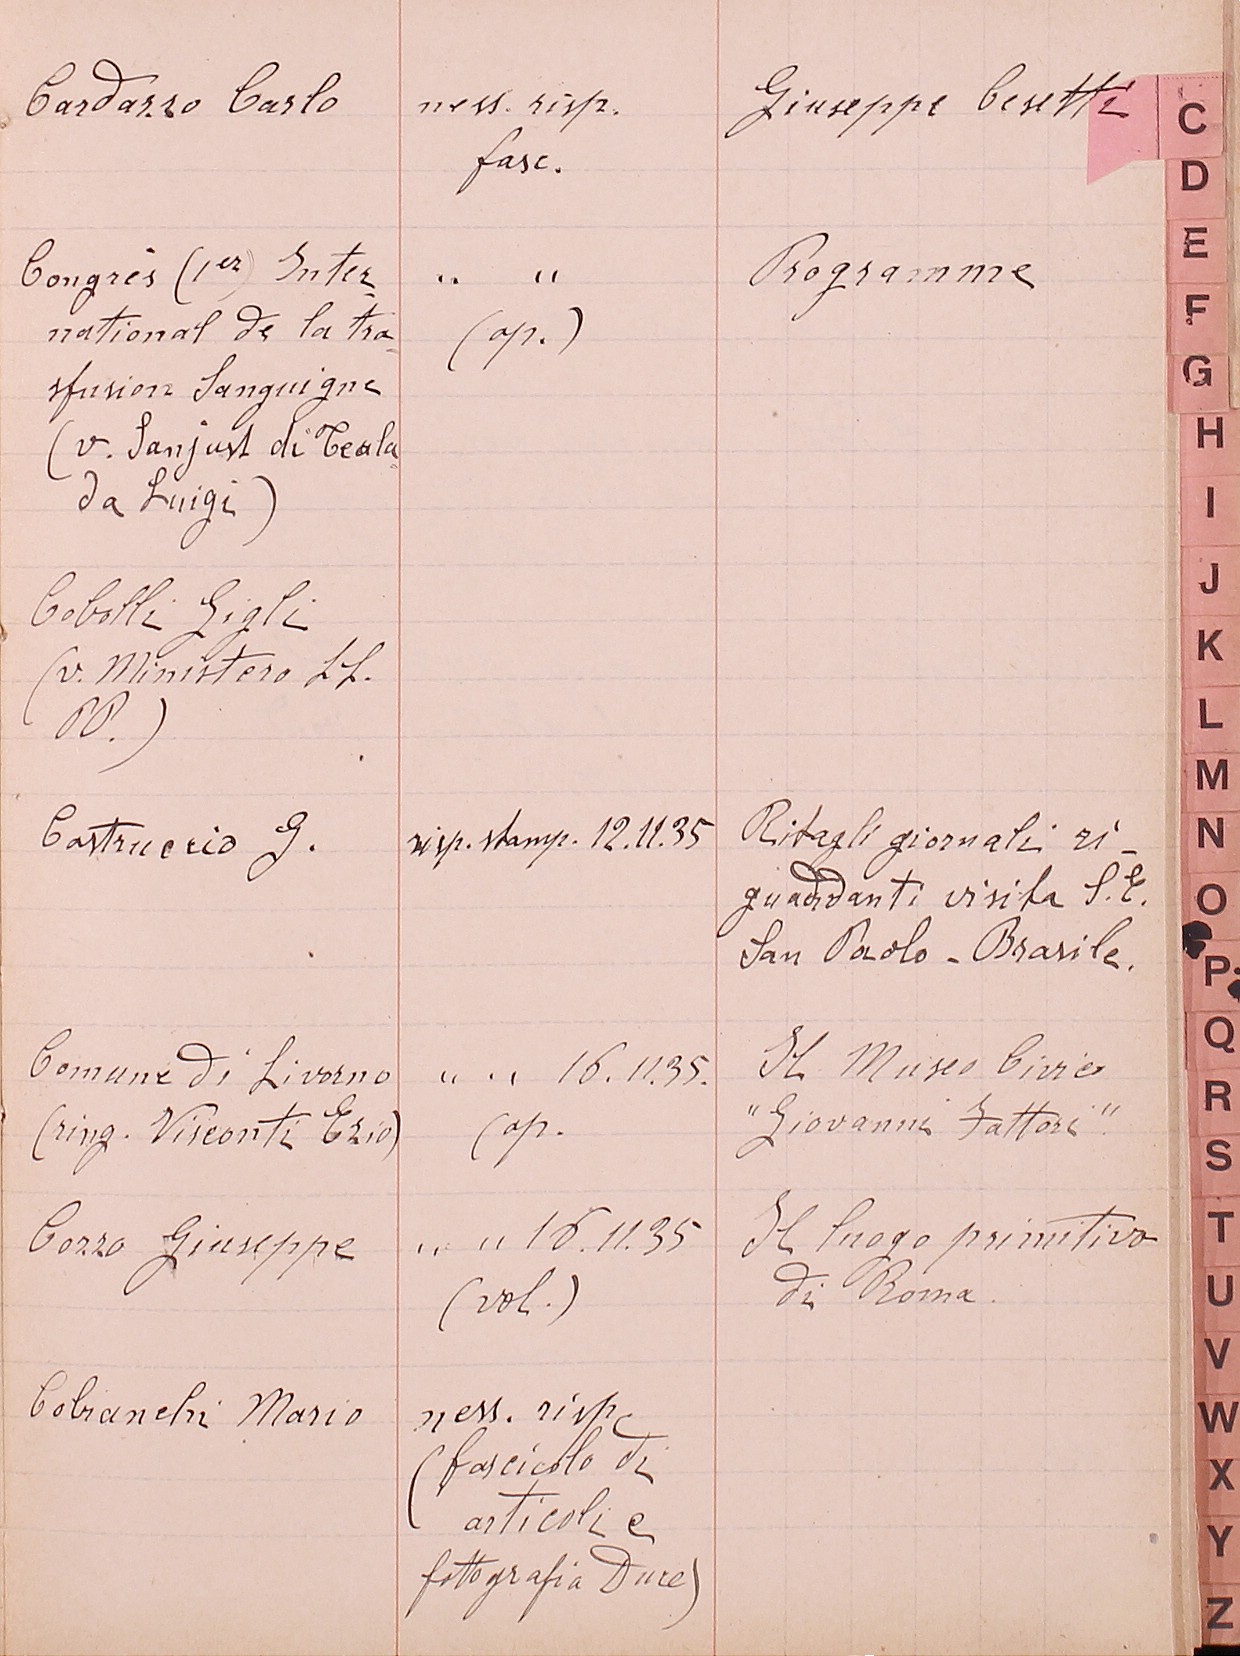 Cardazzo Carlo
ness. risp.
fasc.
Giuseppe Cesetti
Congrès (1er) Inter-
national de la tra-
sfusion Sanguigne
(v. Sanjust di Teula-
da Luigi)
" "
(op.)
Programme
Cobolli Gigli
(v. Ministero LL.
PP.)
Castruccio G.
risp. stamp. 12.11.35
Ritagli giornali ri-
guardanti visita S.E.
San Paolo - Brasile.
Comune di Livorno
(ring. Visconti Ezio)
" " 16.11.35.
(op.
Il Museo Civico
"Giovanni Fattori".
Cozzo Giuseppe
" " 16.11.35
(vol.)
Il luogo primitivo
di Roma.
Cobianchi Mario
ness. risp.
(fascicolo di
articoli e
fottografia Duce)
C
D
E
F
G
H
I
J
K
L
M
N
O
P
Q
R
S
T
U
V
W
X
Y
Z